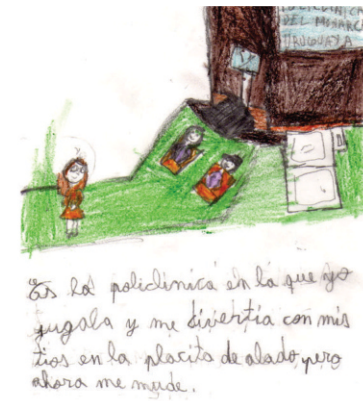 DEL
URUGUAYA
Es la policlinica en la que yo
jugaba y me divertia con mis
tios en la placita de alado, pero
ahora me mude.